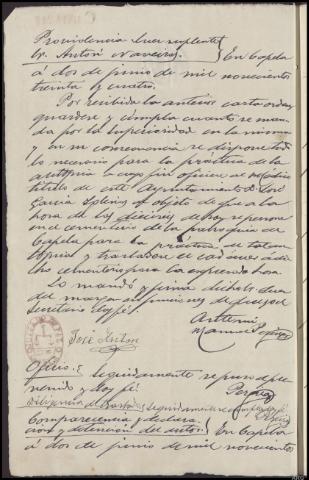 Providencia Juez suplente
Sr. Antón Naveiras } En Capela
á dos de junio de mil novecientos
treinta y cuatro.
Por recibida la anterior carta orden
guárdese y cúmpla cuanto se man-
da por la Superioridad en la misma
y en su consecuencia se dispone todo
lo necesario para la práctica de la
autopsia a cuyo fin oficiese al médico
titular de este Ayuntamiento D. José
García Iglesias al objeto de que a la
hora de las de hoy se persone
en el cementerio de la parroquia de
Capela para la práctica de tal au-
topsia y trasladen el cadáver á di-
cho cementerio para la expresada hora.
Lo mandó y firma dicho Sr. Juez
del margen en funciones de que yo el
Secretario doy fé.
José Anton
Ante mi
Manuel
Oficio.= Seguidamente se puso el pre-
venido y doy fé.
Diligencia Seguidamente se
Comparecencia y declara-
ción y detención del autor. } En Capela
á dos de junio de mil novecientos